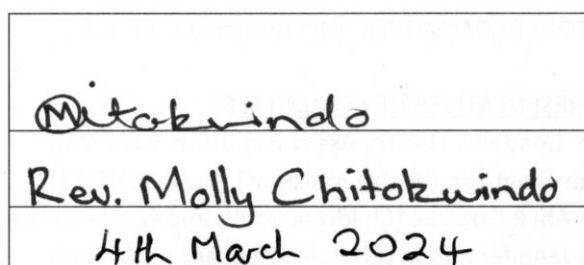 Mitokwindo
Rev. Molly Chitokwindo
4th March 2024